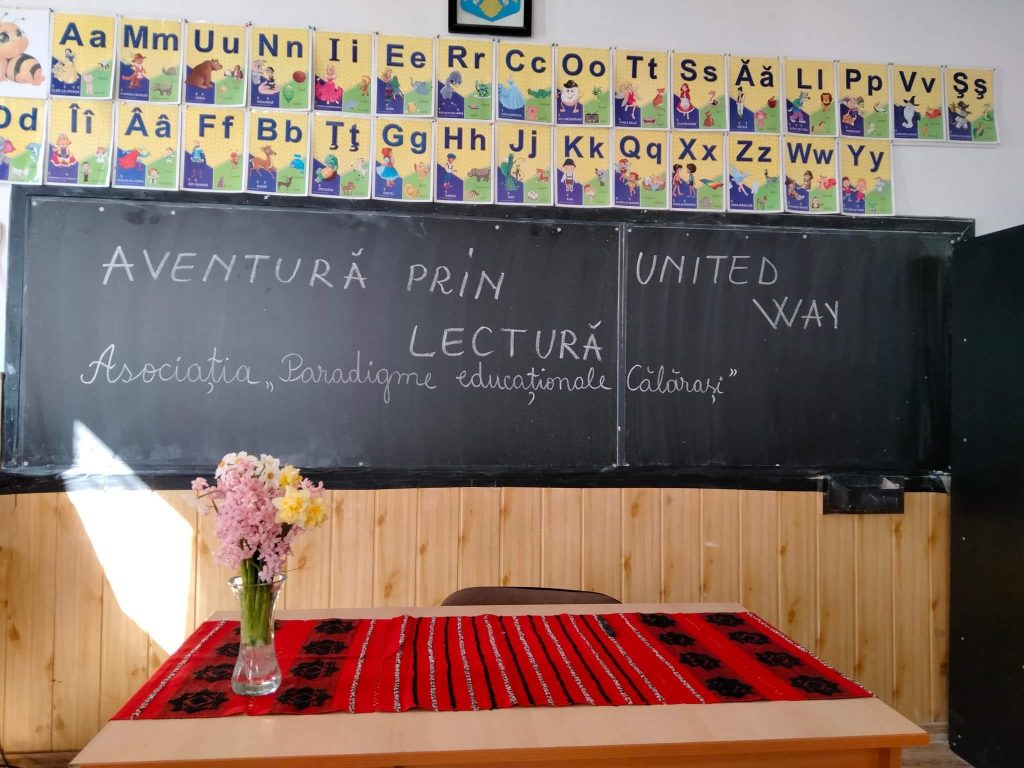 Aa Mm Uu Nn Ii Ee Rr Cc Oo Tt Ss Ăă Ll Pp Vv Şş
Dd Îî Ââ Ff Bb Ţţ Gg Hh Jj Kk Qq Xx Zz Ww Yy
AVENTURĂ PRIN
LECTURĂ
UNITED
WAY
Asociația „Paradigme educaționale Călărași”